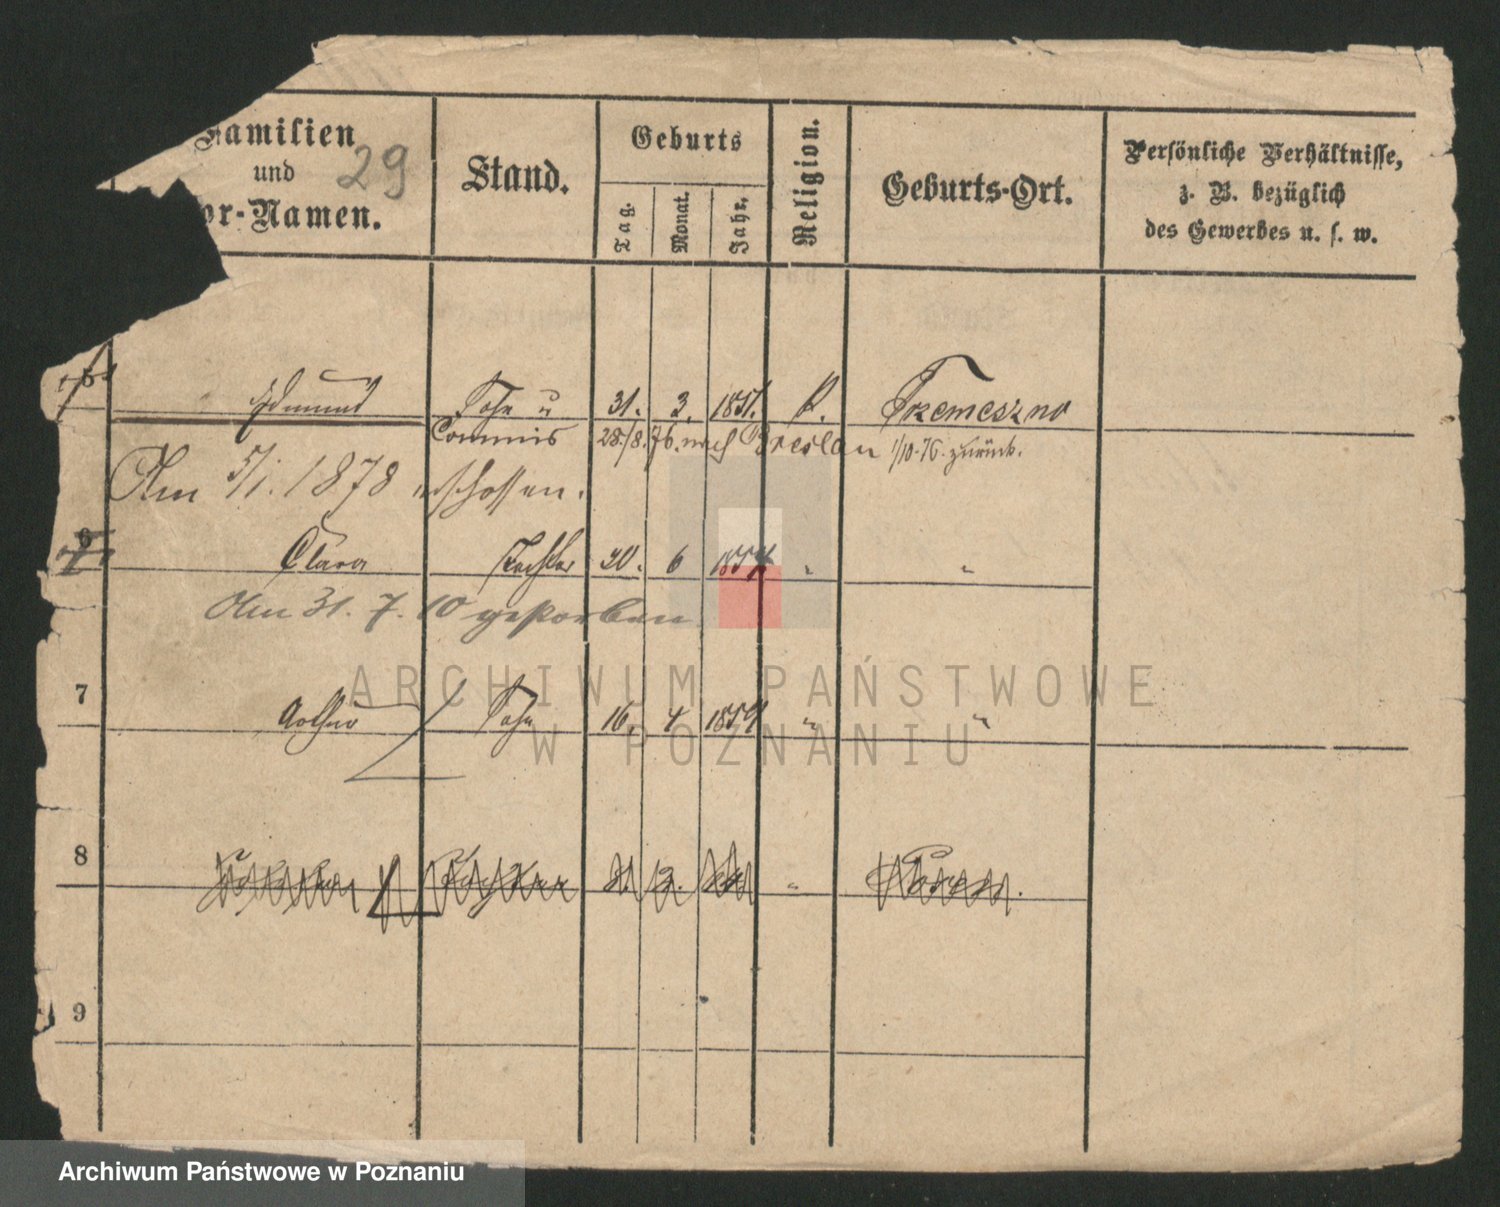 Familien
und
29
or-Namen.
Stand.
Geburts
Tag.
Monat.
Jahr.
Religion.
Geburts-Ort.
Persönliche Verhältnisse,
z. B. bezüglich
des Gewerbes u. s. w.
5 Edmund Sohn u 31. 3. 1851. k. Tremeszno
Commis 28./8. 76. nach Breslau 1/10.76. zurück.
Am 5/1. 1878 erschossen.
6 Clara Tochter 30. 6 " "
Am 31. 7. 10 gestorben
7 Arthur Sohn 16. 4 1859 " "
8 "
9
ARCHIWUM PAŃSTWOWE
W POZNANIU
Archiwum Państwowe w Poznaniu